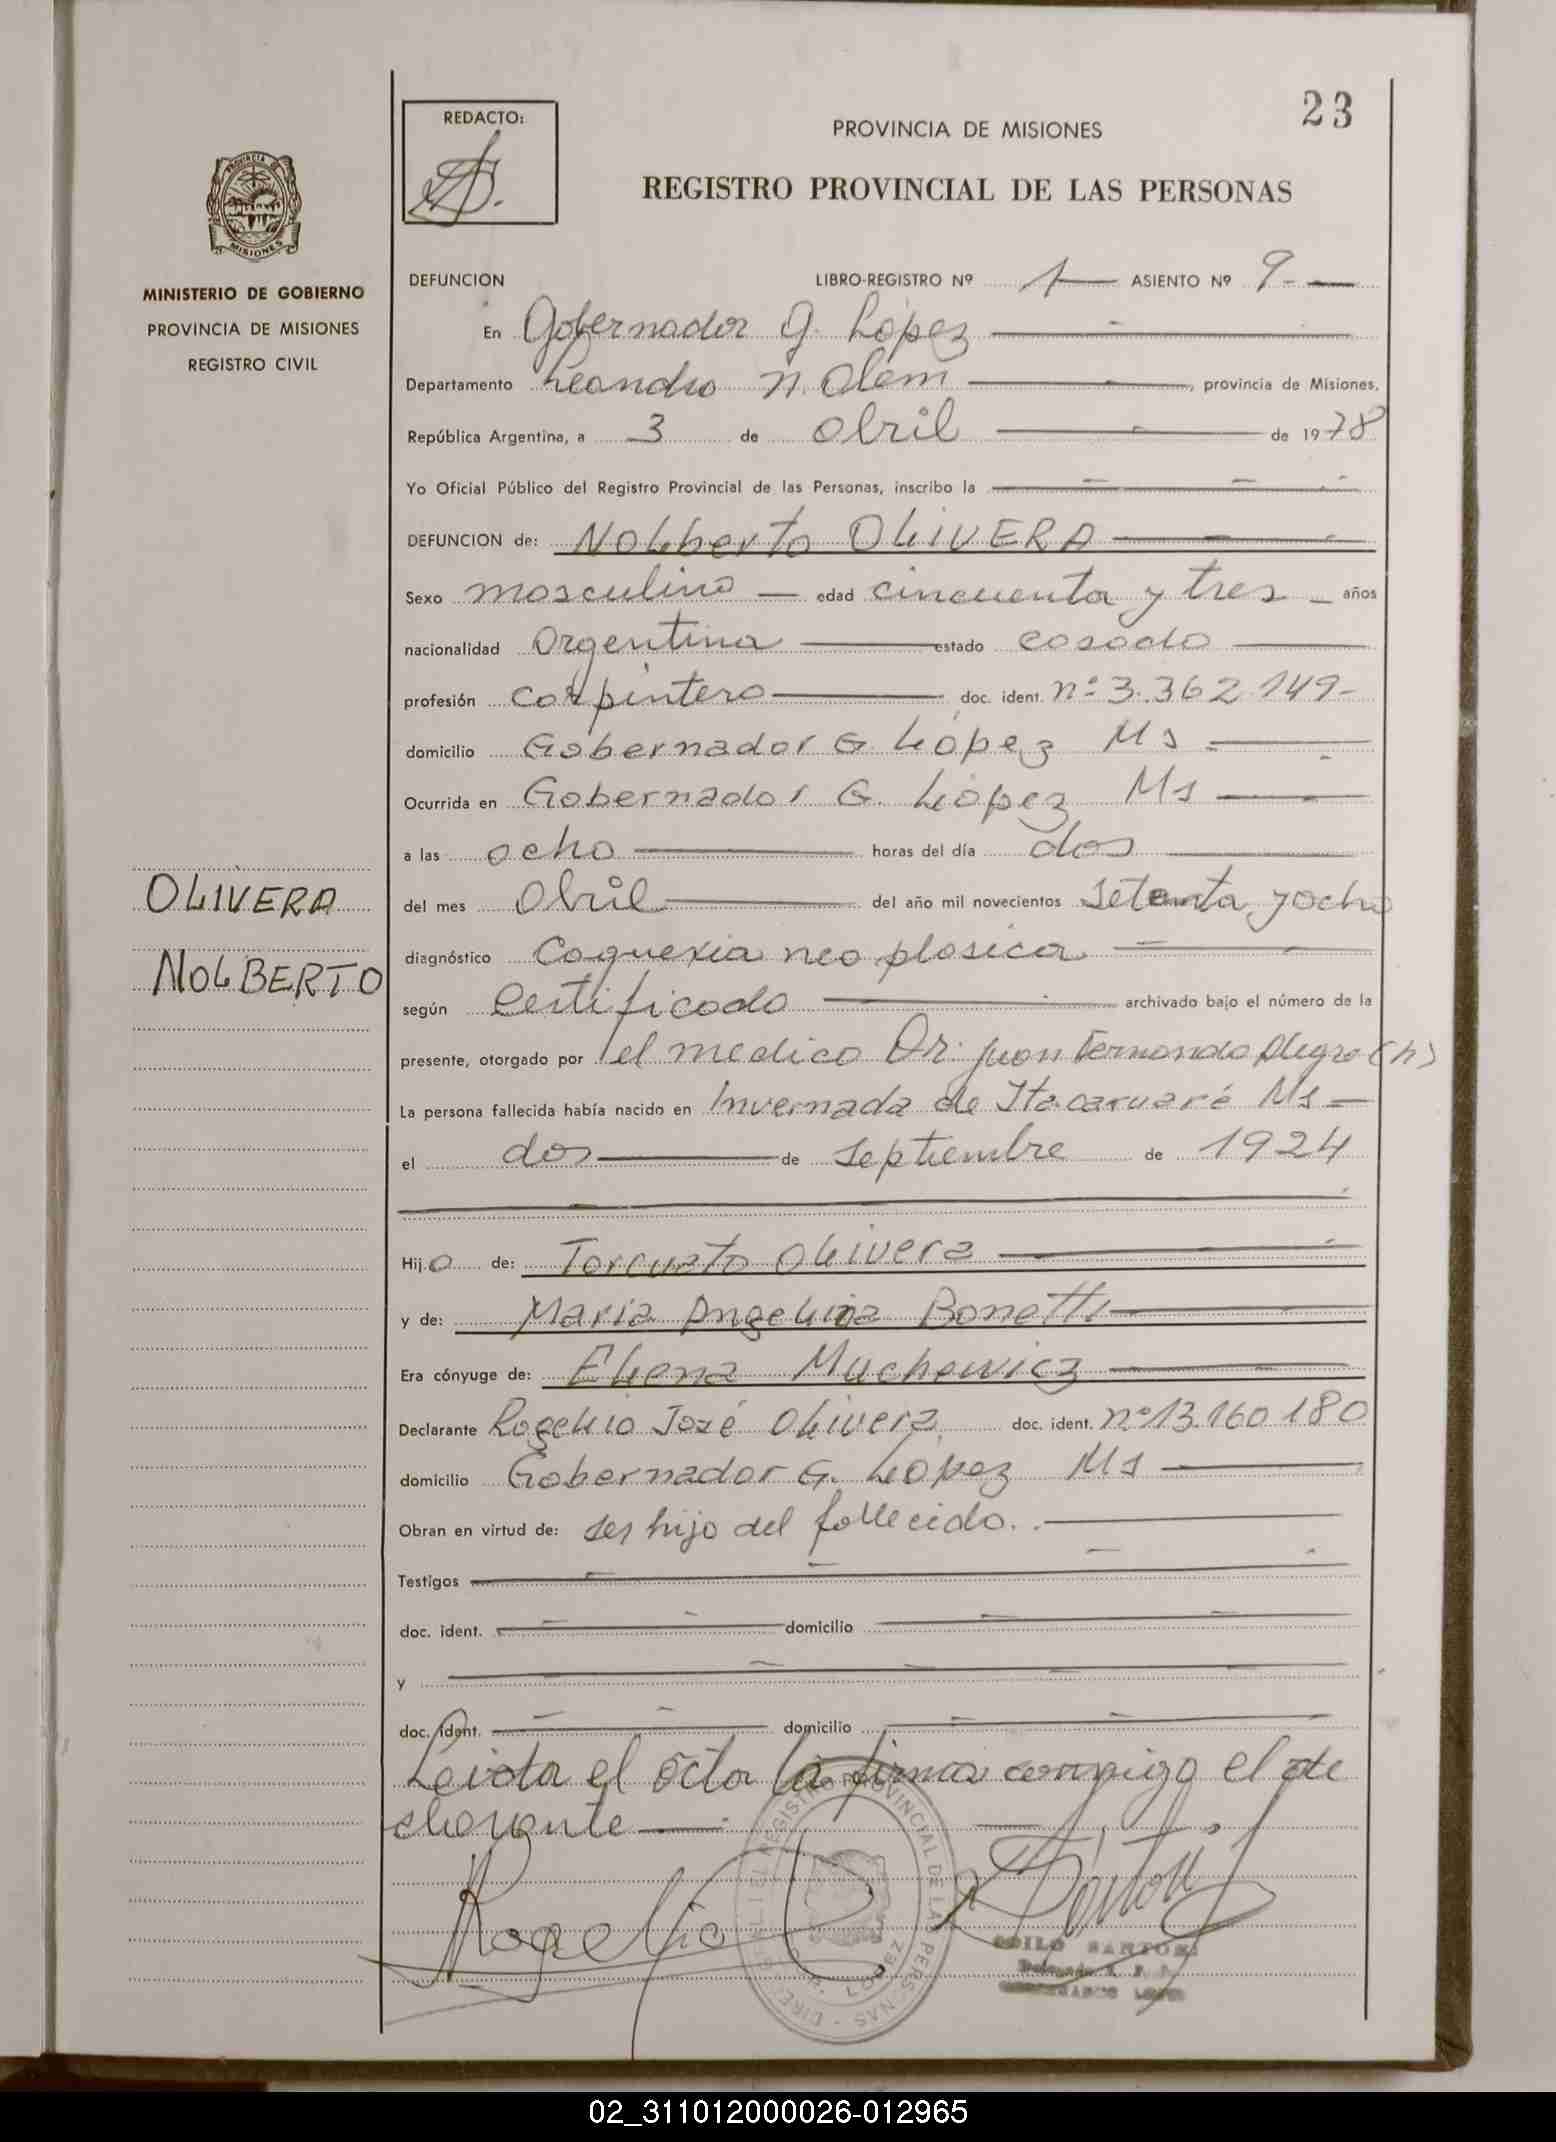 23
REDACTO:
PROVINCIA DE MISIONES
REGISTRO PROVINCIAL DE LAS PERSONAS
PROVINCIA DE
MISIONES
MINISTERIO DE GOBIERNO
PROVINCIA DE MISIONES
REGISTRO CIVIL
DEFUNCION LIBRO-REGISTRO Nº 1 ASIENTO Nº 9
En Gobernador G. López
Departamento Leandro N. Alem, provincia de Misiones,
República Argentina, a 3 de abril de 1978
Yo Oficial Público del Registro Provincial de las Personas, inscribo la
DEFUNCION de: Nolberto OLIVERA
Sexo masculino edad cincuenta y tres años
nacionalidad Argentina estado casado
profesión carpintero doc. ident. nº 3.362.149
domicilio Gobernador G. López Ms
Ocurrida en Gobernador G. López Ms
a las ocho horas del día dos
OLIVERA
NOLBERTO
del mes abril del año mil novecientos setenta y ocho
diagnóstico Caquexia neoplasica
según Certificado archivado bajo el número de la
presente, otorgado por el medico Dr. Juan Fernando Alegre (h)
La persona fallecida había nacido en Invernada de Itacaruaré Ms
el dos de septiembre de 1924
Hijo de: Torcuato Olivera
y de: Maria Angelina Bonetti
Era cónyuge de: Elena Muchewicz
Declarante Rogelio José Olivera doc. ident. nº 13.160.180
domicilio Gobernador G. López Ms
Obran en virtud de: ser hijo del fallecido..
Testigos
doc. ident. domicilio
y
doc. ident. domicilio
Leida el acta la firma conmigo el de
clarante
Rogelio
REGISTRO PROVINCIAL DE LAS PERSONAS
ODILO SARTORI
02_311012000026-012965